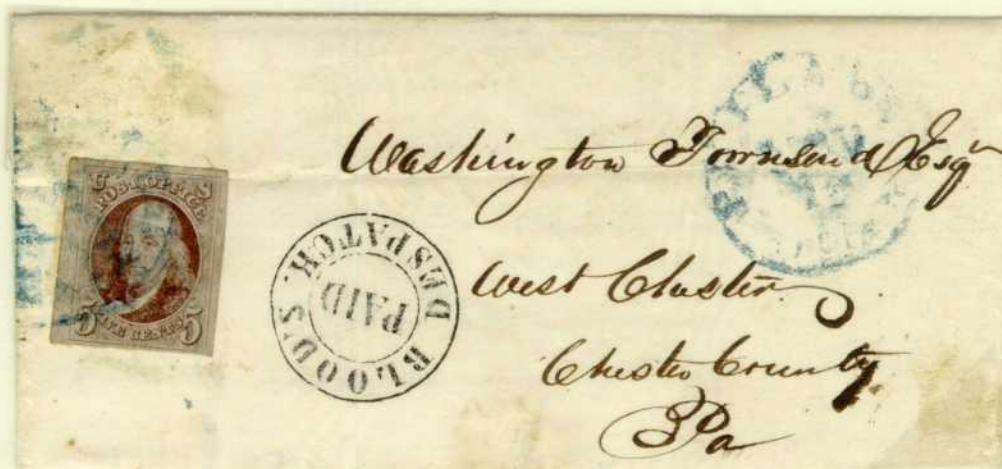 POST OFFICE
FIVE CENTS
5 5
BLOOD'S DESPATCH.
PAID
Washington Townsend Esqr
West Chester
Chester County
Pa